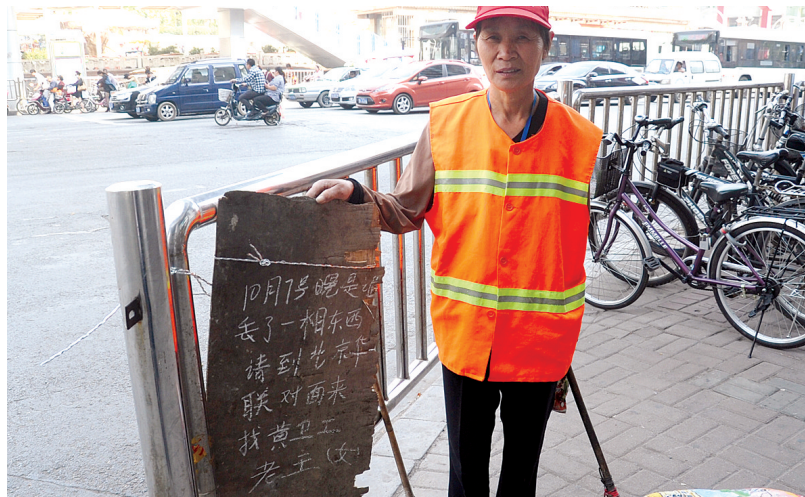 10月7号晚是谁
丢了一相东西
请到北京华
联对面来
找黄卫工
老王(女